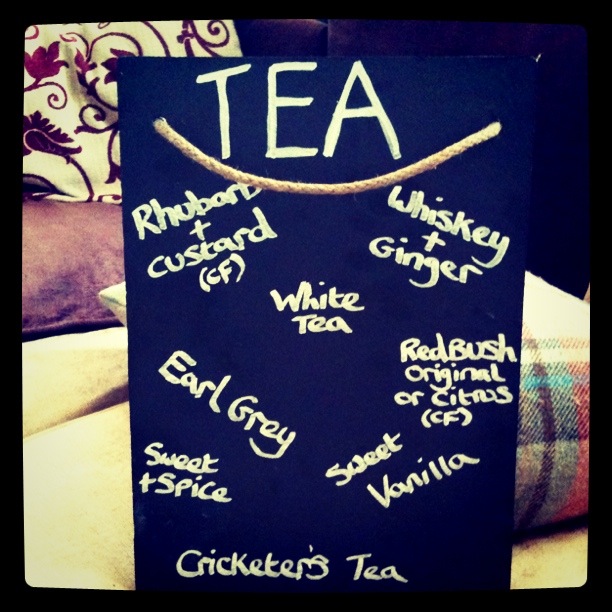 TEA
Rhubarb
+
custard
(CF)
Whiskey
+
Ginger
White
Tea
RedBush
original
or citrus
(CF)
Earl Grey
Sweet
+ Spice
Sweet
Vanilla
Cricketer's Tea